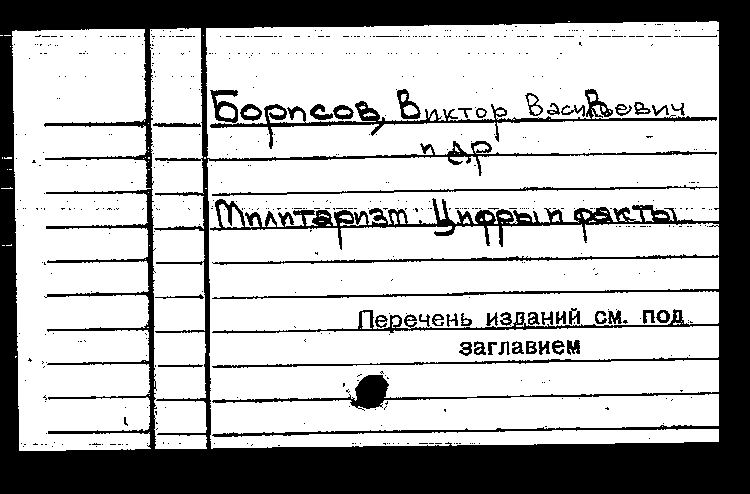 Борисов, Виктор Васильевич
и др
Милитаризм: Цифры и факты
Перечень изданий см. под
заглавием